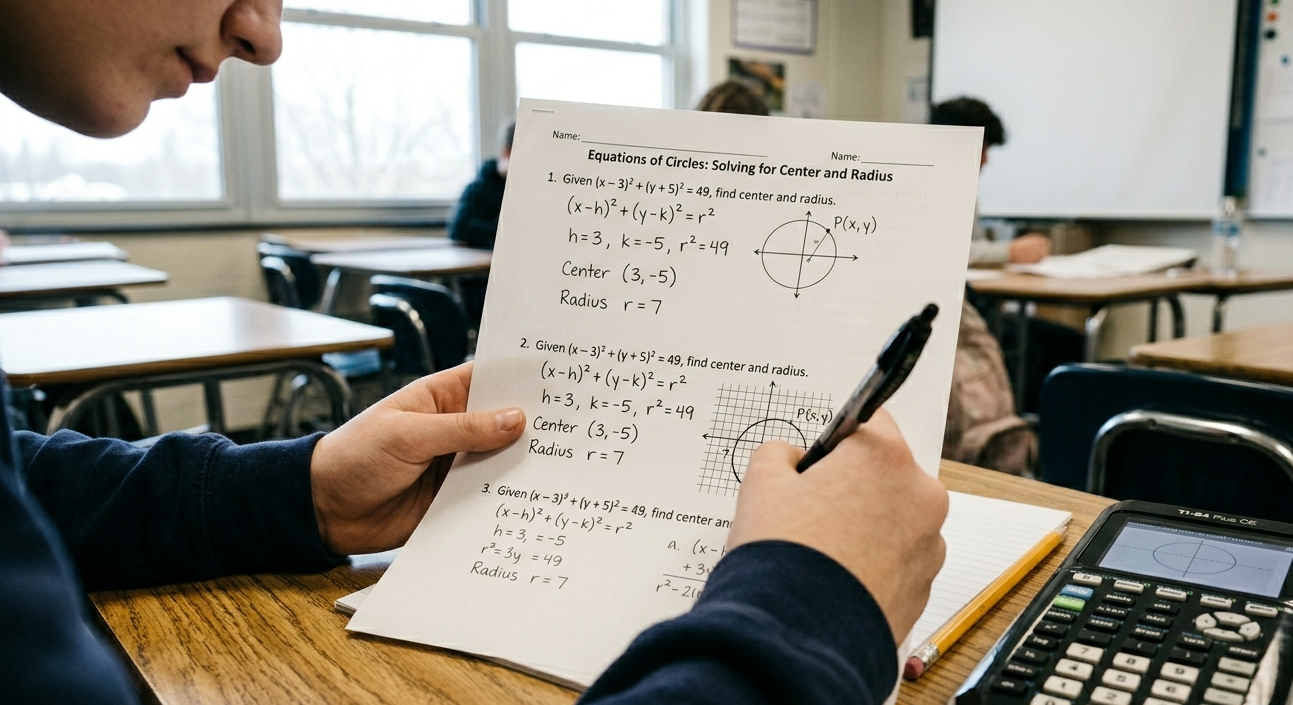 Name:
Name:
Equations of Circles: Solving for Center and Radius
1. Given (x – 3)² + (y + 5)² = 49, find center and radius.
(x-h)² + (y-k)² = r²
P(x, y)
h = 3, k = -5, r² = 49
Center (3, -5)
Radius r = 7
2. Given (x – 3)² + (y + 5)² = 49, find center and radius.
(x-h)² + (y-k)² = r²
h = 3, k = -5, r² = 49
P(x, y)
Center (3, -5)
7
Radius r = 7
3. Given (x – 3)³ + (y + 5)² = 49, find center an
(x-h)² + (y-k)² = r²
h = 3, = -5
a. (x-h
r² = 3y = 49
+ 3y
Radius r = 7
r² - 2(
TI-84 Plus CE
7
8
9
4